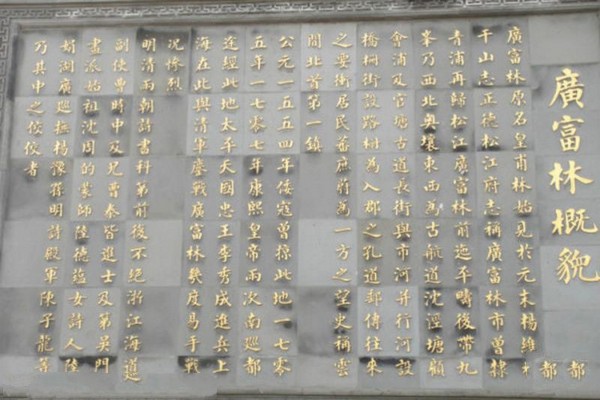 廣富林概貌
廣富林原名皇甫林始見於元末楊維
干山志正德松江府志稱廣富林市曾隸
青浦再歸松江廣富林前迤平疇後帶九
峯乃西北奧壤東西為古航道沈涇塘顧
會浦及官塘古道長街與市河并行河設
橋柵街設路柵為入郡之孔道郵傳往來
之要衝居民蕃庶蔚為一方之望又稱雲
間北首第一鎮
公元一五五四年倭寇曾掠此地一七零
五年一七零七年康熙皇帝兩次南巡都
途經此地太平天國忠王李秀成進兵上
海在此與清軍鏖戰廣富林幾度易手戰
況慘烈
明清兩朝詩書科第前後不絕浙江海道
副使曹時中及兄曹泰皆進士及第吳門
畫派始祖沈周的蒙師陸德蘊女詩人陸
娟湖廣巡撫楊豫孫明詩殿軍陳子龍等
乃其中之佼佼者
都
都